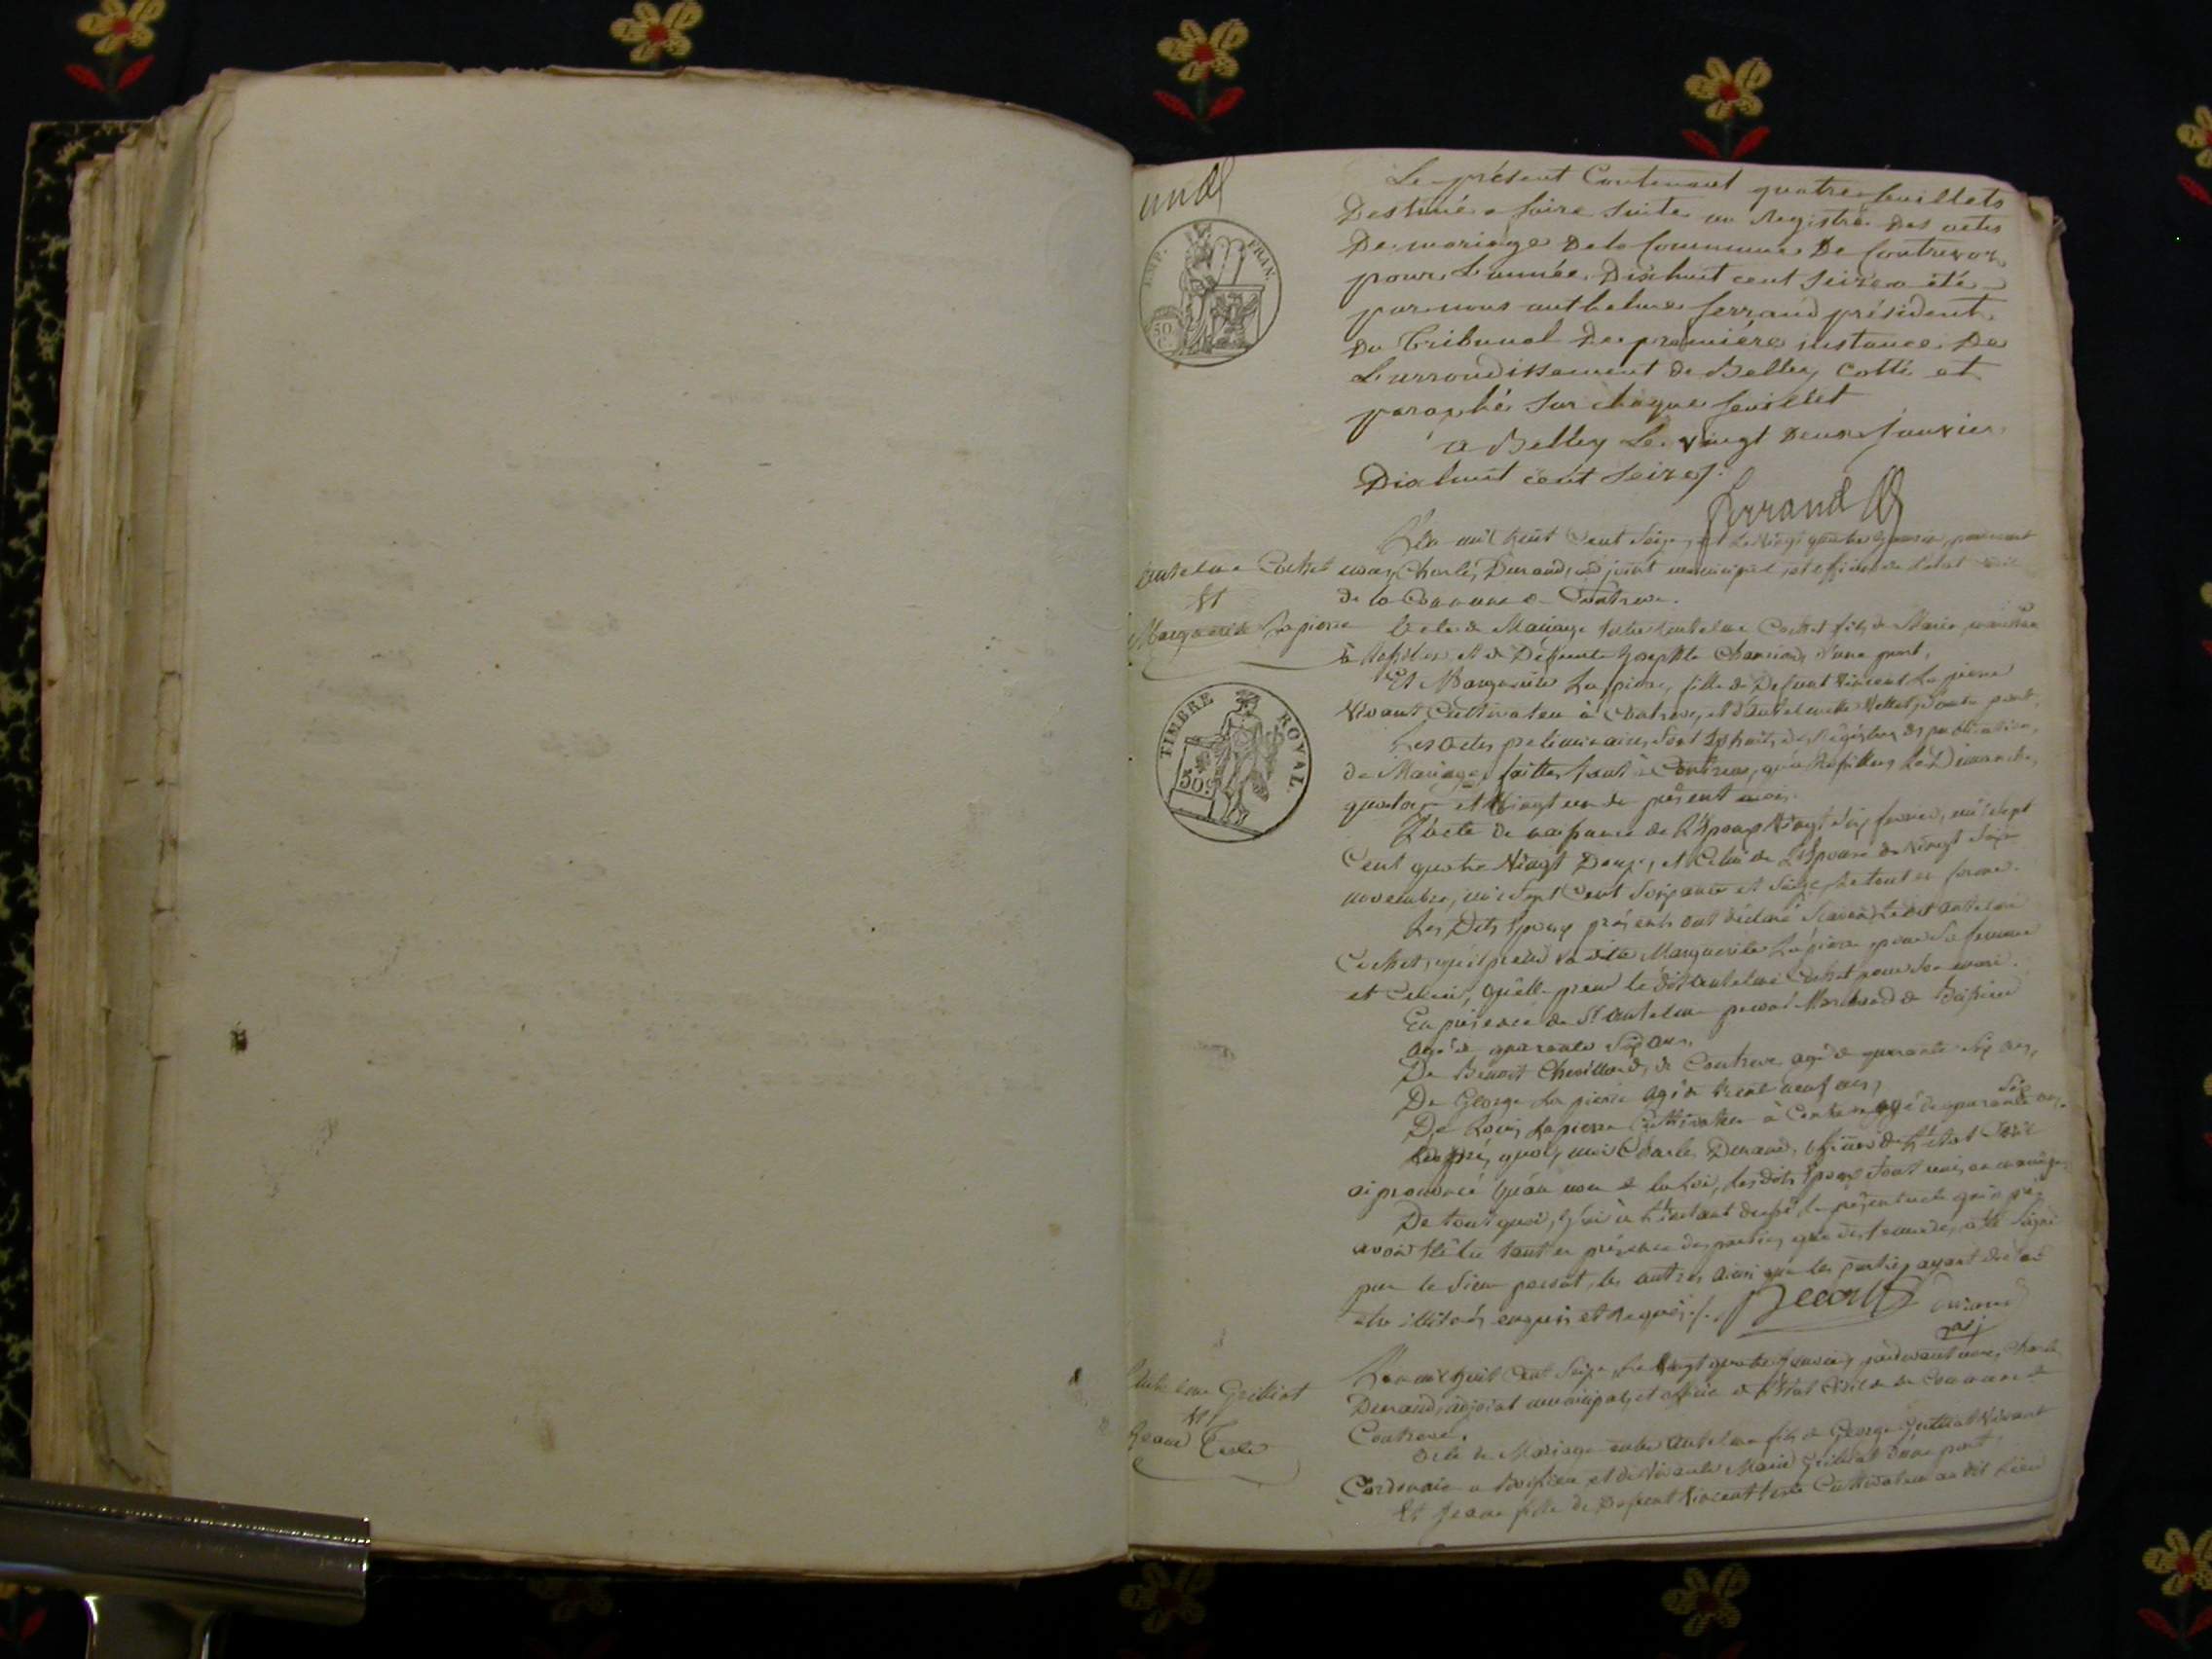 un
Le présent Contenant quatre feuillets
Destiné a faire suite au Registre Des actes
De mariage De la Commune De Contrevoz
pour L'année Dixhuit cent seize a été
par nous anthelme ferrand président
Du Tribunal De première instance De
L'arrondissement de Belley Cotté et
paraphé sur chaque feuillet
a Belley Le vingt Deux janvier
Dixhuit cent seize
IMP. FRAN.
50
ferrand
L'an mil huit Cent Seize, et le Vingt quatre janvier, pardevant
antelme Cochet
et
Marguerite Lapierre
moi, Charles Durand, adjoint municipal, et officier de l'état civil
de la Commune de Contrevoz.
Acte de Mariage entre antelme Cochet fils de
et de Défunte Josephte d'une part,
Et Marguerite Lapierre, fille de Défunt Vincent Lapierre
Vivant Cultivateur à Contrevoz, et d'antelmette d'autre part,
TIMBRE ROYAL
50
Les actes préliminaires sont Extraits des Registres de publication
de Mariage, faites tant à Contrevoz, qu'à le Dimanche
quatorze et Vingt un du présent mois.
L'acte de naissance de L'Epoux Vingt Six mil sept
Cent quatre Vingt Douze, et Celui de L'Epouse du Vingt Six
novembre, mil Sept Cent Soixante et Seize le tout en forme.
Les Dits Epoux présents ont déclaré Scavoir Ledit antelme
Cochet, qu'il prend la dite Marguerite Lapierre pour Sa femme
et Celle ci, qu'elle prend le dit antelme Cochet pour Son mari.
En présence de Sr antelme
agé de quarante Six ans,
De Benoit Chevillard, de Contrevoz agé de quarante Six ans,
De George Lapierre agé de trente neuf ans,
De Louis Lapierre Cultivateur à Contrevoz agé de quarante Six ans,
après quoi, moi Charles Durand, officier de l'état Civil
ai prononcé qu'au nom de la Loi, les dits Epoux sont unis en mariage
De tout quoi, j'ai à l'instant dressé le présent acte qu'après
avoir été lu tant en présence des parties que des témoins, a été Signé
par le Sieur les autres ainsi que les parties ayant déclaré
être illitérés enquis et requis ./.
Durand
adj
antelme Grilliet
et
Jeanne
L'an mil huit Cent Seize, le Vingt quatre janvier, pardevant moi, Charles
Durand, adjoint municipal, et officier de l'état Civil de la Commune de
Contrevoz.
Acte de Mariage entre antelme fils de George Vivant
Cordonnier a et de Vivante Marie d'une part
Et Jeanne fille de Defunt Vincent Cultivateur au dit Lieu